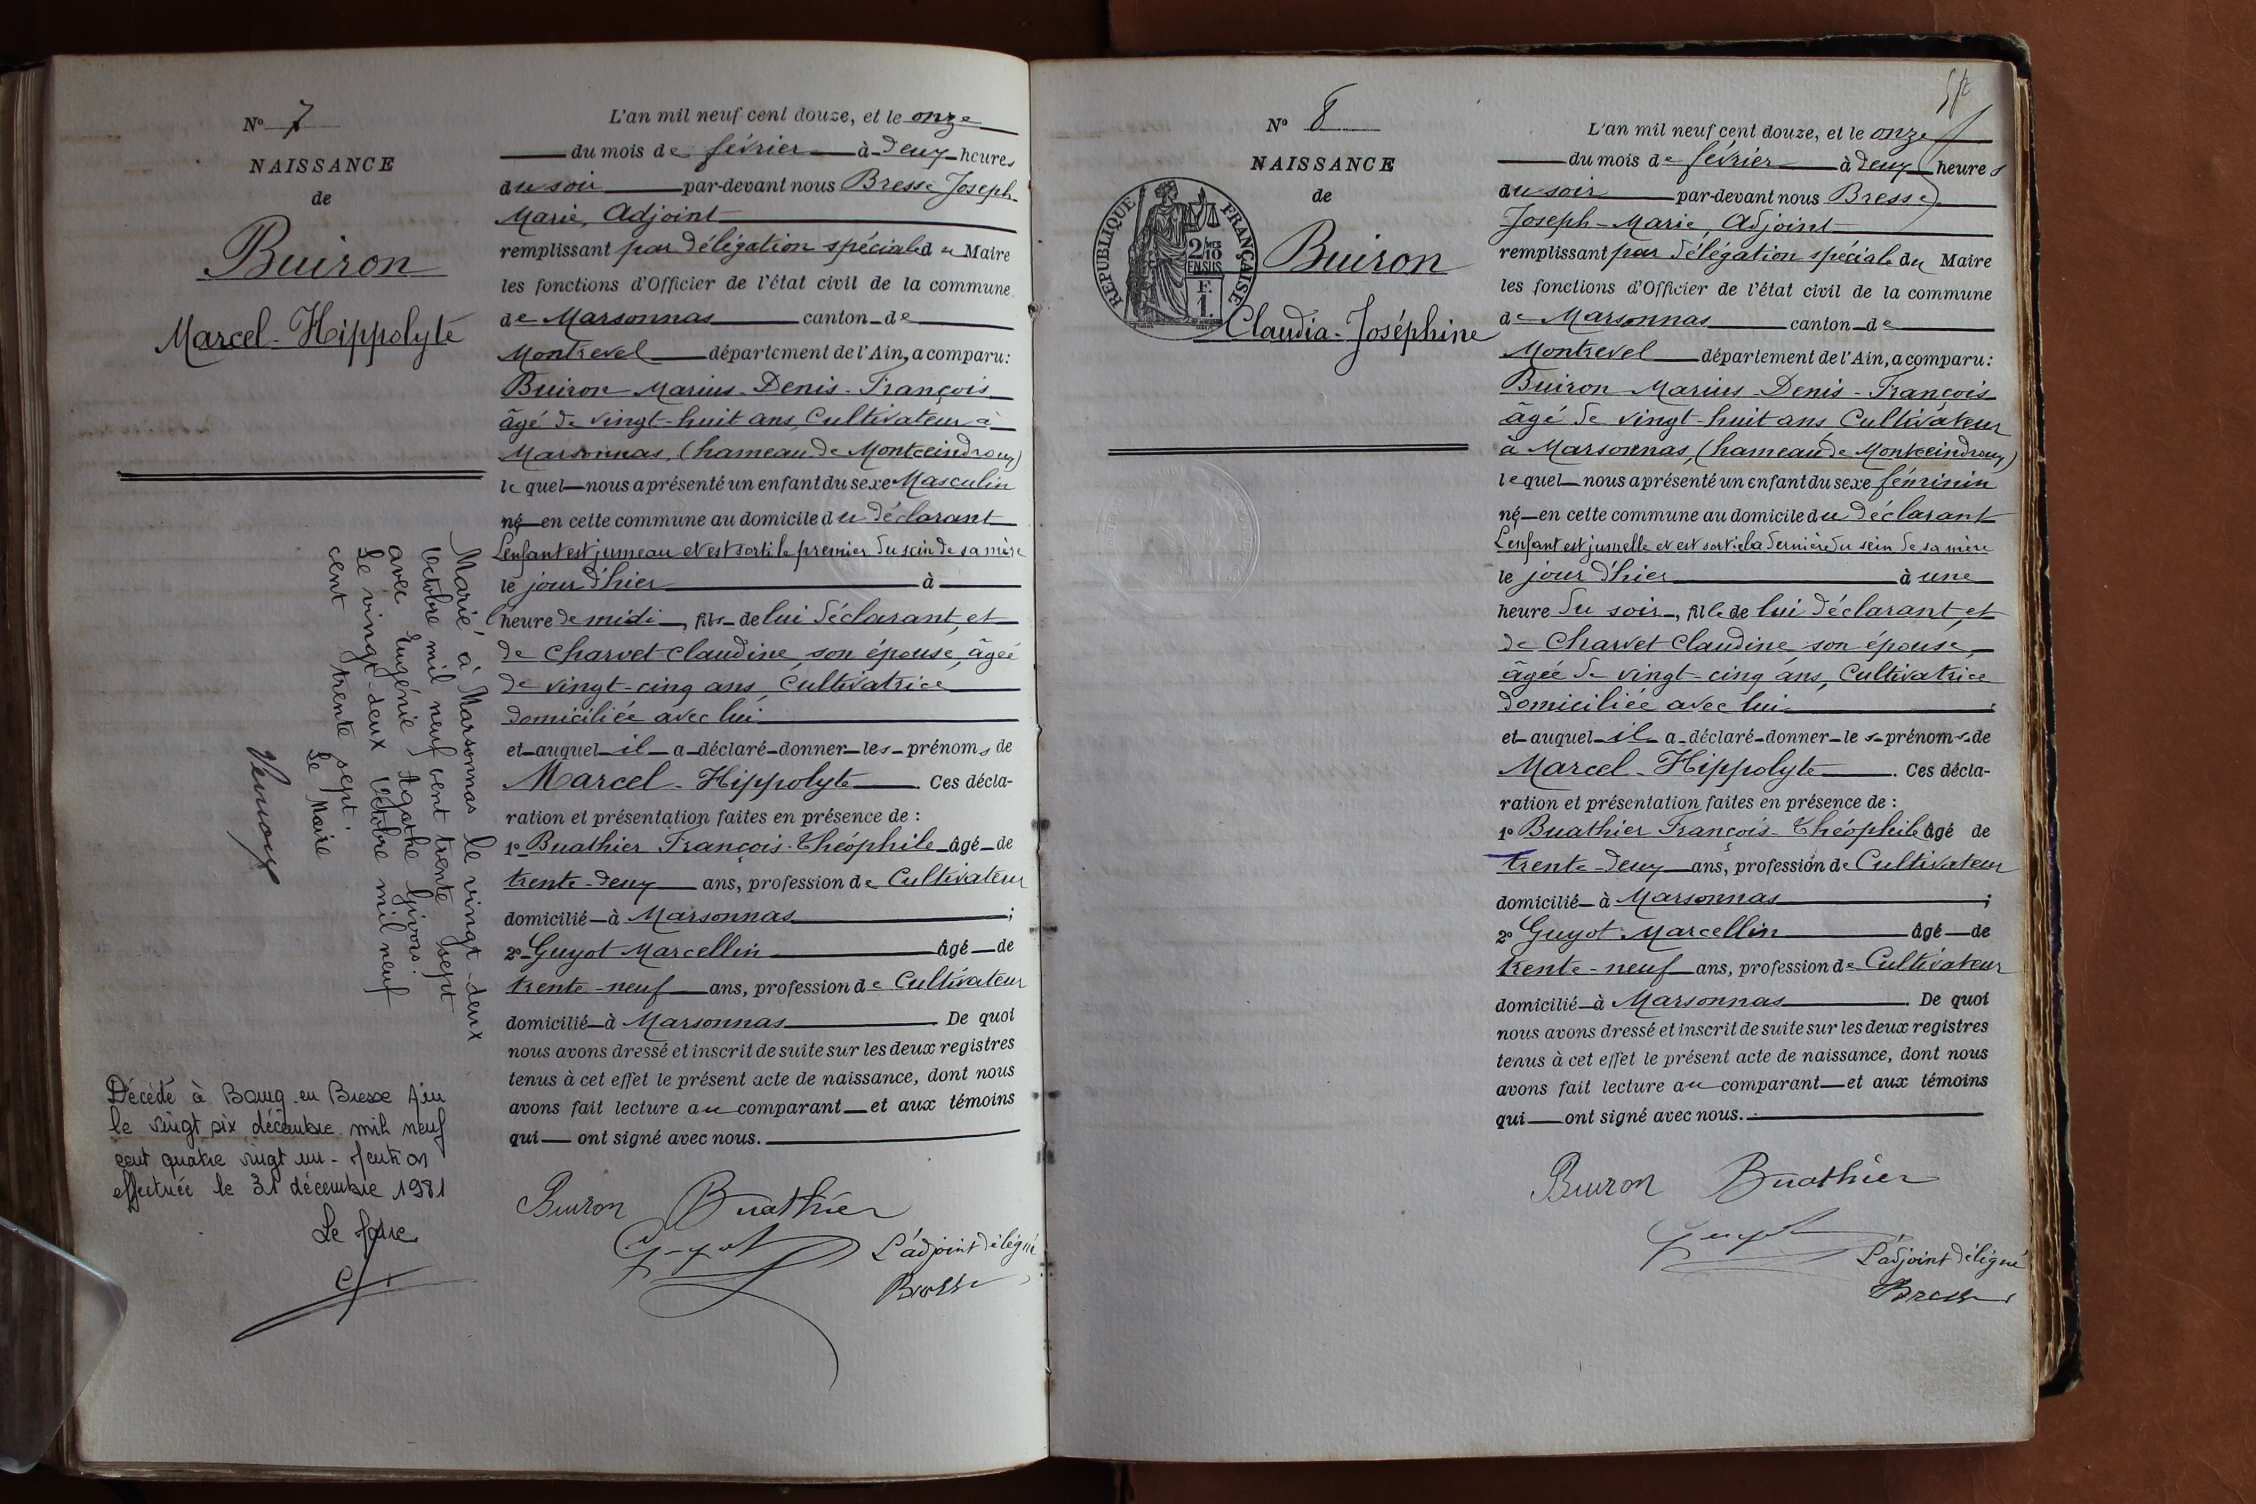 Nº 7
NAISSANCE
de
Buiron
Marcel-Hippolyte
Marié à Marsonnas le vingt-deux
Octobre mil neuf cent trente sept
avec Eugénie Agathe
Le vingt-deux Octobre mil neuf
cent trente sept.
Le Maire
Décédé à Bourg en Bresse Ain
le vingt six décembre mil neuf
cent quatre vingt un - Mention
effectuée le 31 décembre 1981
Le Maire
L'an mil neuf cent douze, et le onze
du mois de février à deux heures
du soir par-devant nous Bresse Joseph-
Marie, Adjoint
remplissant par délégation spéciale du Maire
les fonctions d'Officier de l'état civil de la commune
de Marsonnas canton de
Montrevel département de l'Ain, a comparu:
Buiron Marius-Denis-François
âgé de vingt-huit ans, Cultivateur à
Marsonnas, (hameau de Montceindroux)
lequel nous a présenté un enfant du sexe Masculin
né en cette commune au domicile du déclarant
L'enfant est jumeau et est sorti le premier du sein de sa mère
le jour d'hier à
l'heure de midi, fils de lui déclarant, et
de Charvet Claudine, son épouse, âgée
de vingt-cinq ans, Cultivatrice
domiciliée avec lui
et auquel il a déclaré donner les prénoms de
Marcel-Hippolyte. Ces décla-
ration et présentation faites en présence de :
1º Buathier François-Théophile âgé de
trente-deux ans, profession de Cultivateur
domicilié à Marsonnas ;
2º Guyot Marcellin âgé de
trente-neuf ans, profession de Cultivateur
domicilié à Marsonnas. De quoi
nous avons dressé et inscrit de suite sur les deux registres
tenus à cet effet le présent acte de naissance, dont nous
avons fait lecture au comparant et aux témoins
qui ont signé avec nous.
Buiron Buathier
Guyot L'adjoint délégué
Bresse
Nº 8
NAISSANCE
de
RÉPUBLIQUE FRANÇAISE
2/10 EN SUS
F. 1.
Buiron
Claudia-Joséphine
L'an mil neuf cent douze, et le onze
du mois de février à deux heures
du soir par-devant nous Bresse
Joseph-Marie, Adjoint
remplissant par délégation spéciale du Maire
les fonctions d'Officier de l'état civil de la commune
de Marsonnas canton de
Montrevel département de l'Ain, a comparu:
Buiron Marius Denis-François
âgé de vingt-huit ans, Cultivateur
à Marsonnas, (hameau de Montceindroux)
lequel nous a présenté un enfant du sexe féminin
né en cette commune au domicile du déclarant
L'enfant est jumelle et est sortie la dernière du sein de sa mère
le jour d'hier à une
heure du soir, fille de lui déclarant, et
de Charvet Claudine, son épouse,
âgée de vingt-cinq ans, Cultivatrice
domiciliée avec lui
et auquel il a déclaré donner les prénoms de
Marcel-Hippolyte. Ces décla-
ration et présentation faites en présence de :
1º Buathier François-Théophile âgé de
trente-deux ans, profession de Cultivateur
domicilié à Marsonnas ;
2º Guyot Marcellin âgé de
trente-neuf ans, profession de Cultivateur
domicilié à Marsonnas. De quoi
nous avons dressé et inscrit de suite sur les deux registres
tenus à cet effet le présent acte de naissance, dont nous
avons fait lecture au comparant et aux témoins
qui ont signé avec nous.
Buiron Buathier
Guyot L'adjoint délégué
Bresse